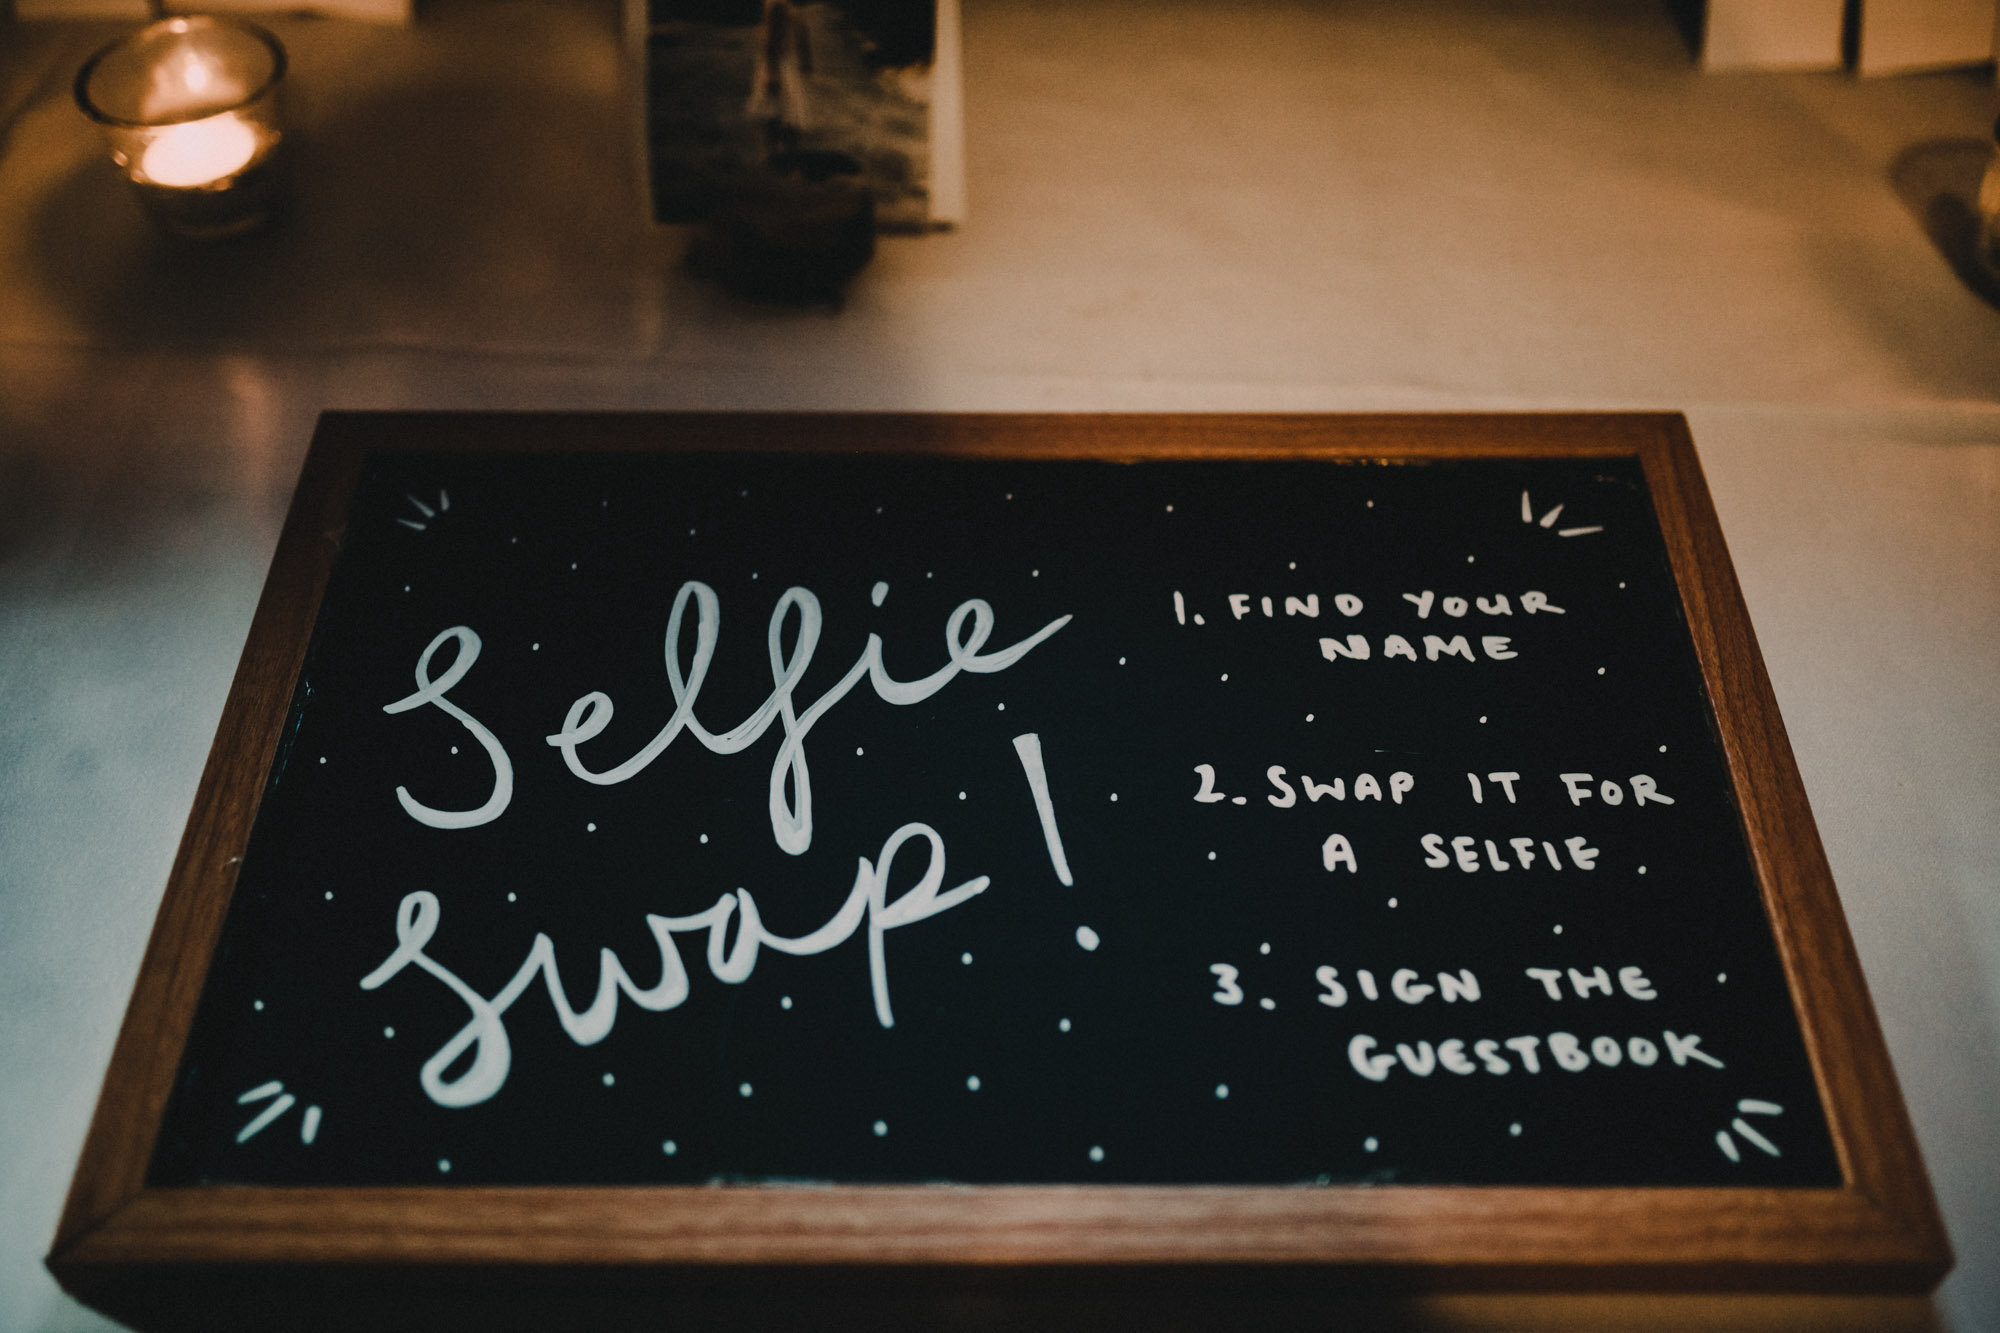 Selfie
Swap!
1. FIND YOUR
NAME
2. SWAP IT FOR
A SELFIE.
3. SIGN THE
GUESTBOOK